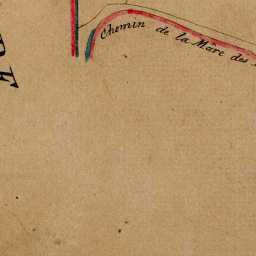 Chemin de la Mare des